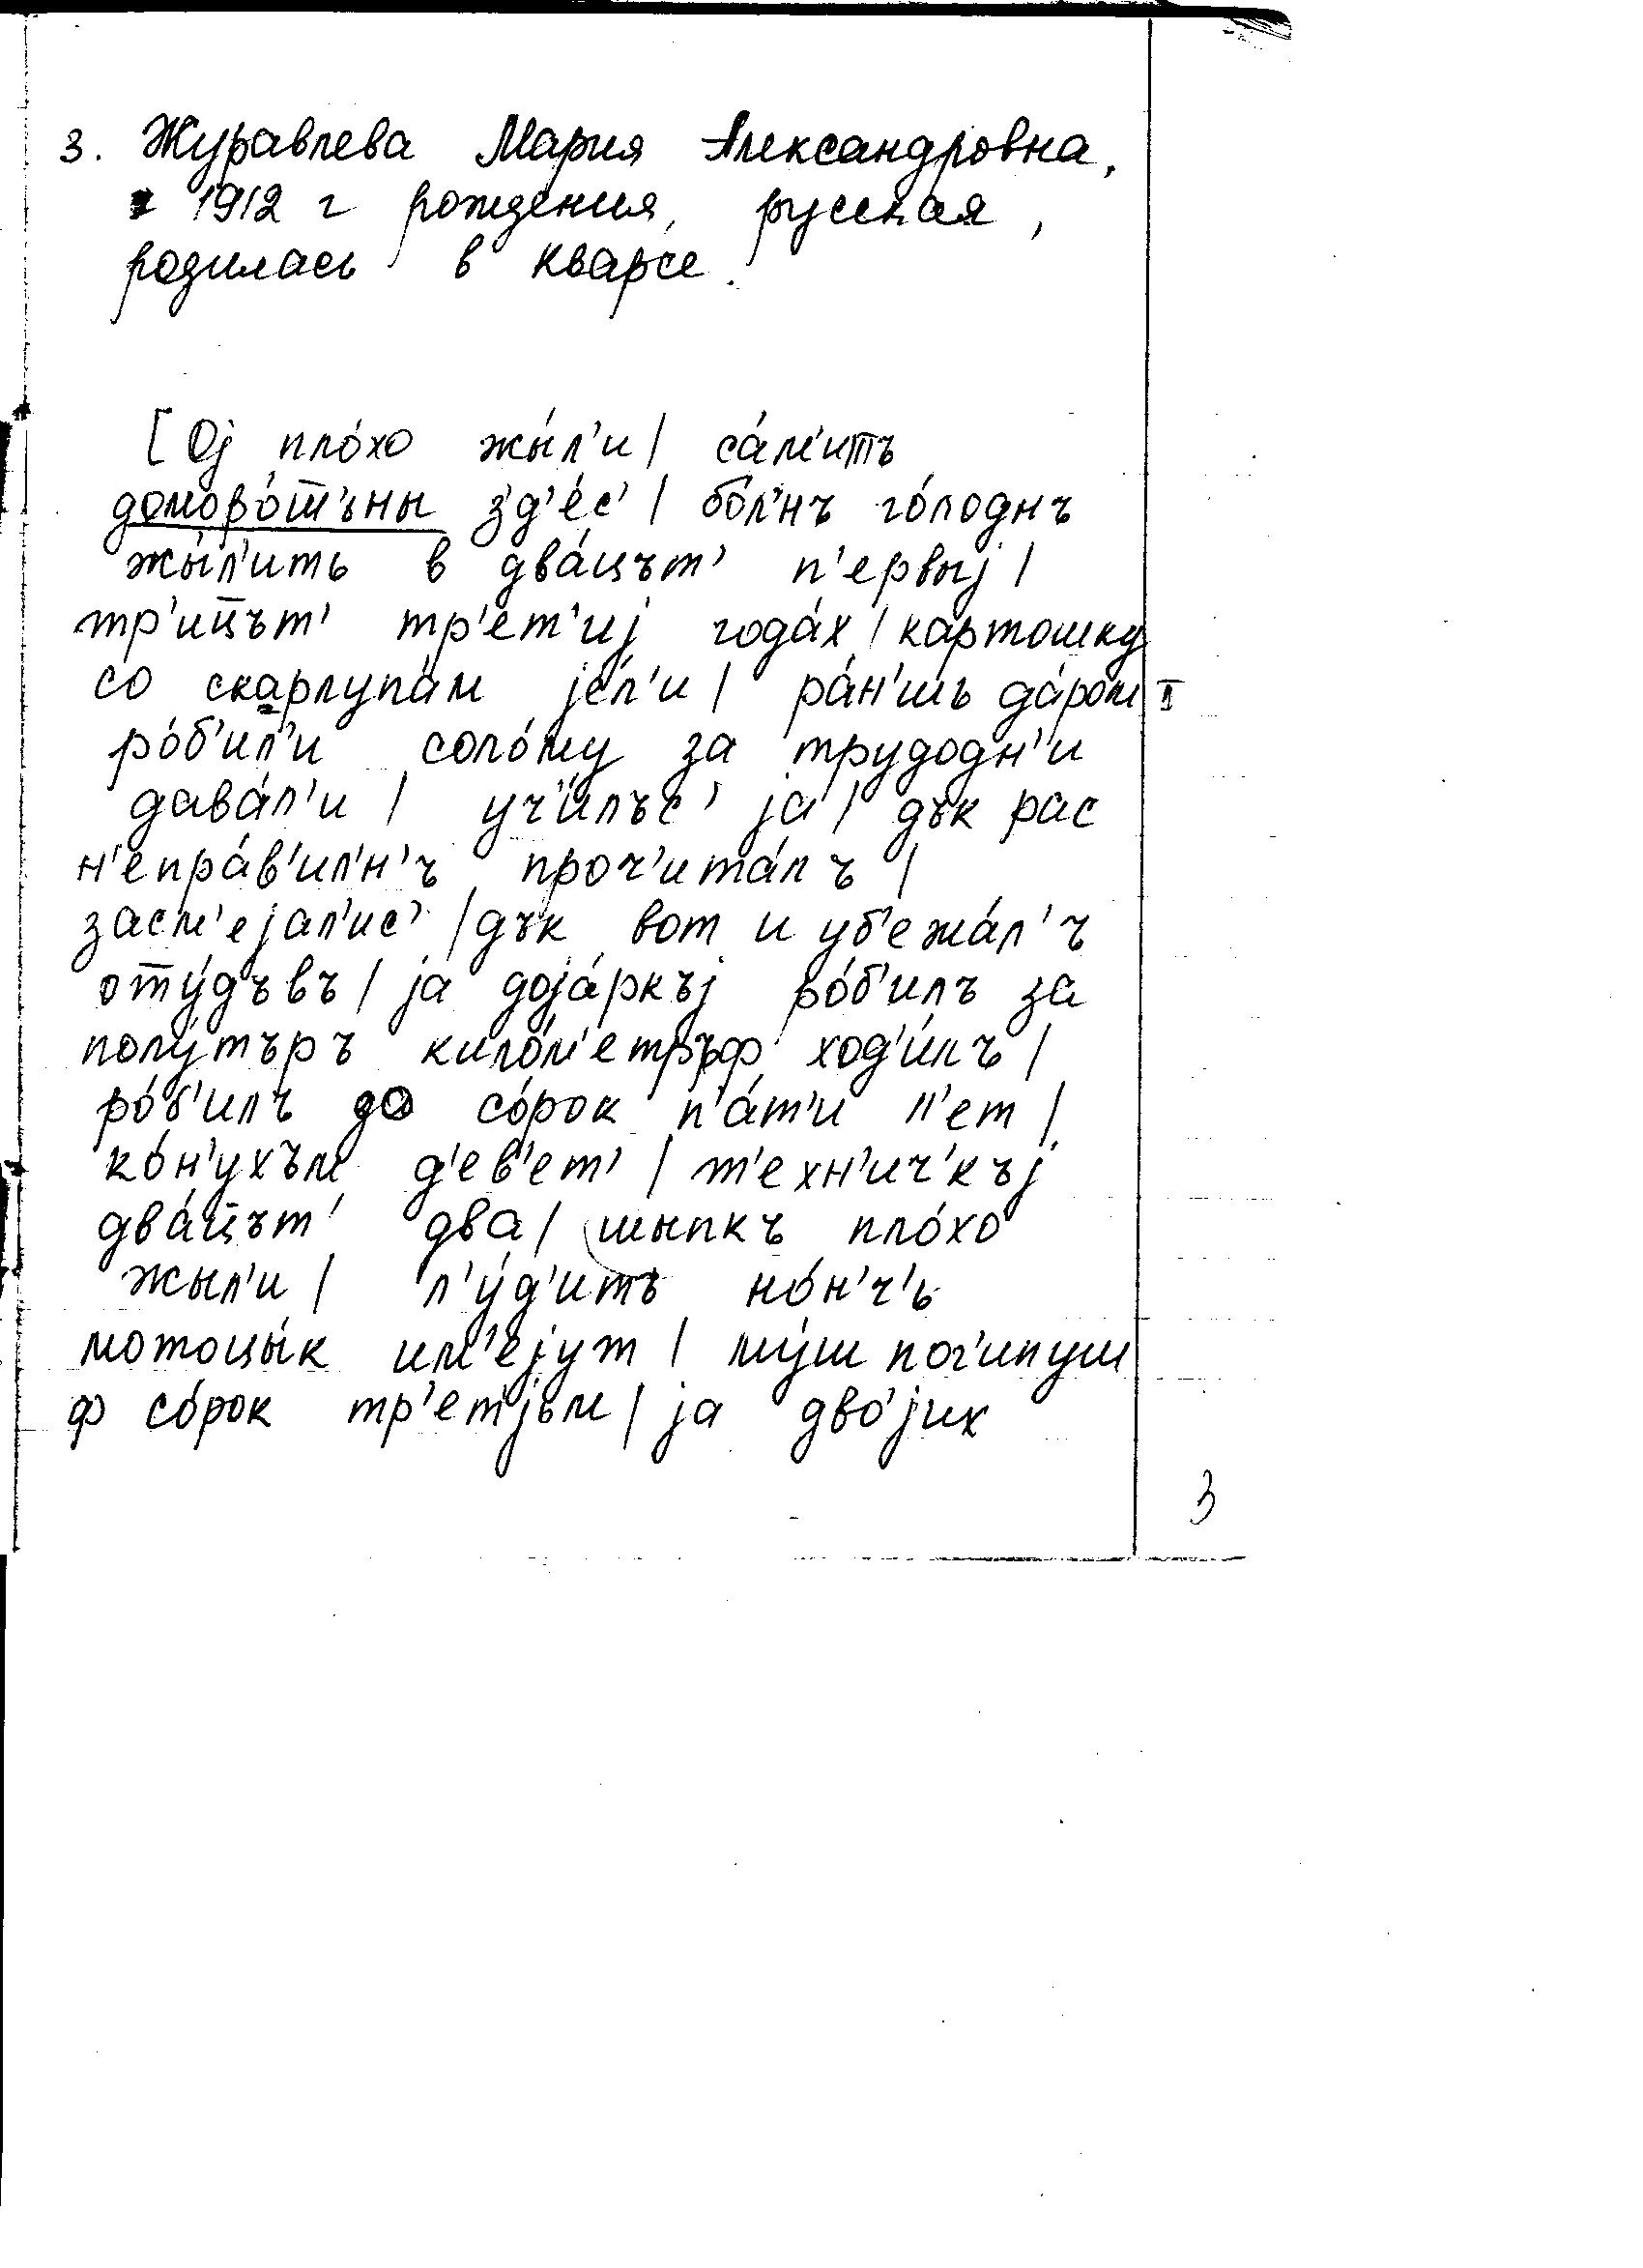 3. Журавлева Мария Александровна,
1912 г рождения, русская,
родилась в Кварсе.
[Oj пло́хо жы́л'и | са́м'итъ
доморо́т'ъны з'д'е́с' | бо́л'нъ го́лоднъ
жы́л'итъ в два́цът' п'ервыj |
тр'ицът' тр'ет'иj года́х | картошку
со скарлупа́м jе́л'и | ра́н'шъ да́ром II
ро́б'ил'и соло́му за трудодн'и
дава́л'и | уч'и́лъс' ja | дък рас
н'епра́в'ил'н'ъ проч'ита́лъ |
засм'еjал'ис' | дък вот и уб'ежа́л'ъ
оту́дъвъ | ja доjа́ркъj ро́б'илъ за
полу́търъ кило́м'етръф ход'и́лъ |
ро́б'илъ до со́рок п'а́т'и л'ет |
ко́н'ухъм д'ев'ет' | т'ехн'ич'къj
два́цът' два | шыпкъ пло́хо
жыл'и | л'у́д'итъ но́н'ч'ь
мотоцы́к им'е́jут | му́ш пог'ипуш
ф со́рок тр'етjьм | ja дво́jих
3